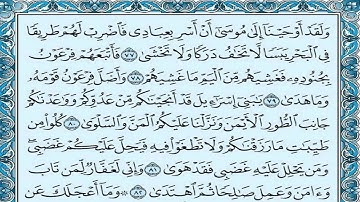 وَلَقَدْ أَوْحَيْنَا إِلَىٰ مُوسَىٰ أَنْ أَسْرِ بِعِبَادِي فَاضْرِبْ لَهُمْ طَرِيقًا
فِي الْبَحْرِ يَبَسًا لَّا تَخَافُ دَرَكًا وَلَا تَخْشَىٰ ٧٧ فَأَتْبَعَهُمْ فِرْعَوْنُ
بِجُنُودِهِ فَغَشِيَهُم مِّنَ الْيَمِّ مَا غَشِيَهُمْ ٧٨ وَأَضَلَّ فِرْعَوْنُ قَوْمَهُ
وَمَا هَدَىٰ ٧٩ يَٰبَنِي إِسْرَٰٓءِيلَ قَدْ أَنجَيْنَٰكُم مِّنْ عَدُوِّكُمْ وَوَٰعَدْنَٰكُمْ
جَانِبَ الطُّورِ الْأَيْمَنَ وَنَزَّلْنَا عَلَيْكُمُ الْمَنَّ وَالسَّلْوَىٰ ٨٠ كُلُوا مِن
طَيِّبَٰتِ مَا رَزَقْنَٰكُمْ وَلَا تَطْغَوْا فِيهِ فَيَحِلَّ عَلَيْكُمْ غَضَبِي
وَمَن يَحْلِلْ عَلَيْهِ غَضَبِي فَقَدْ هَوَىٰ ٨١ وَإِنِّي لَغَفَّارٌ لِّمَن تَابَ
وَءَامَنَ وَعَمِلَ صَٰلِحًا ثُمَّ اهْتَدَىٰ ٨٢ وَمَا أَعْجَلَكَ عَن